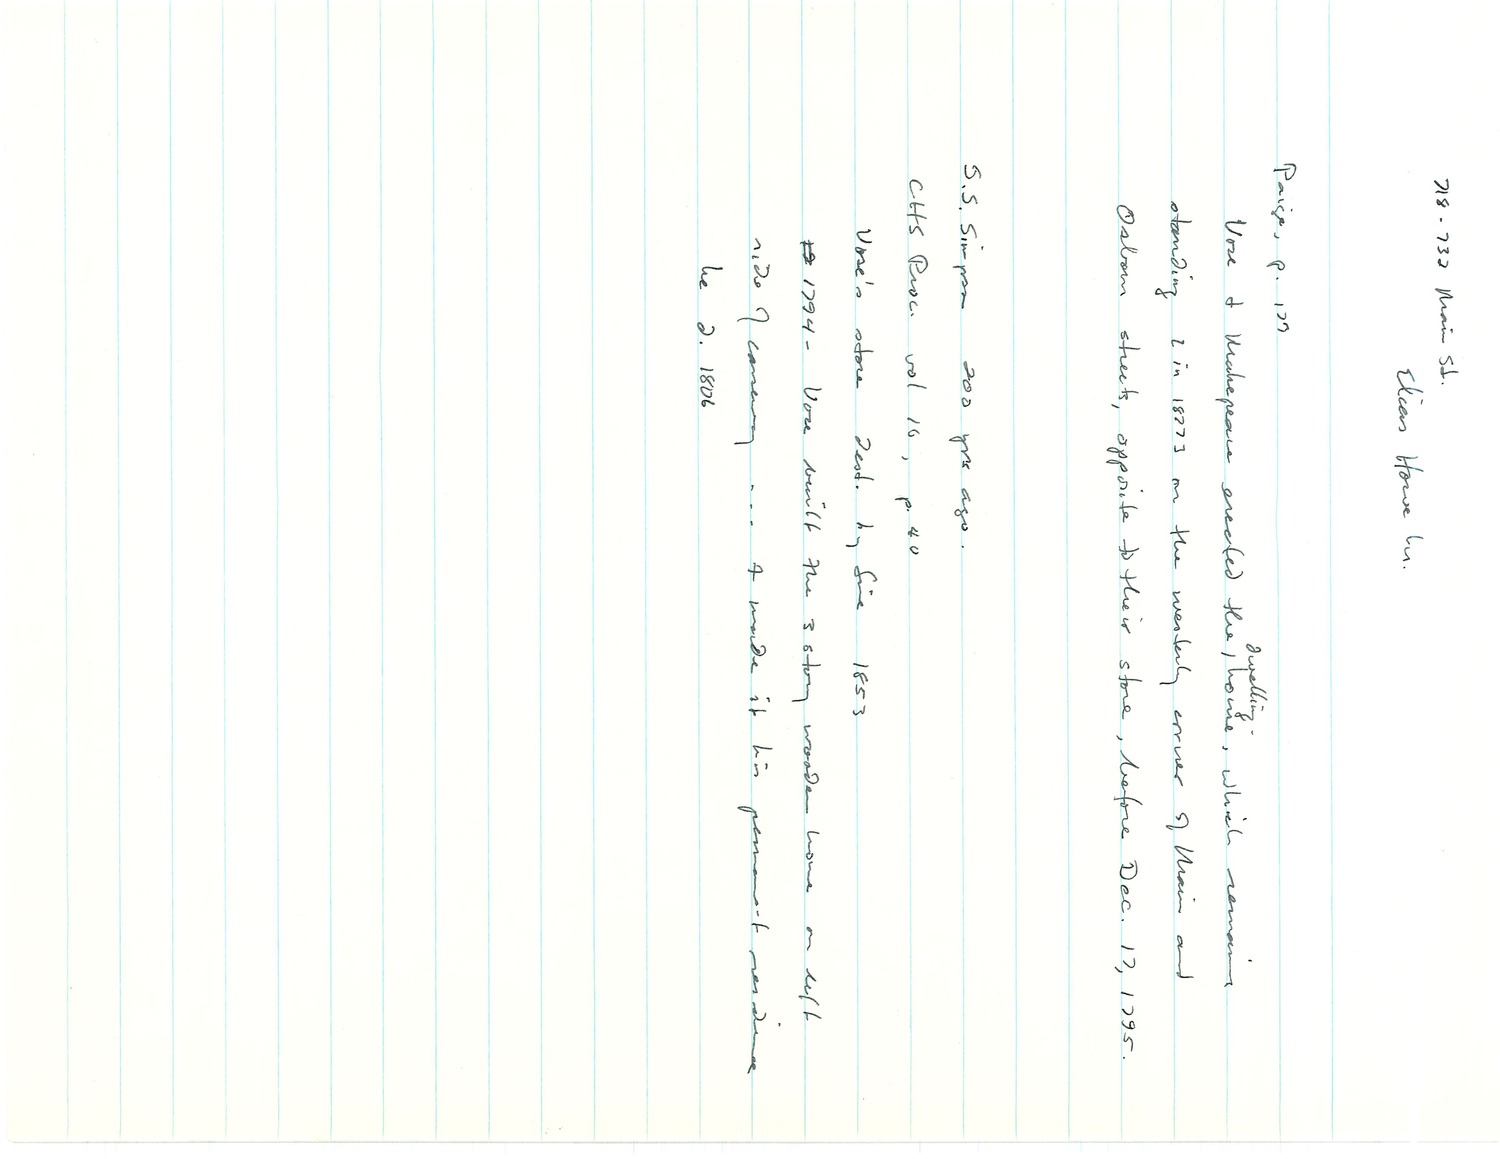 718-732 Main St.
Elias Howe hs.
Paige, p. 177
Vose & Makepeace erected the dwelling-house, which remains
standing in 1873 on the westerly corner of Main and
Osborn streets, opposite to their store, before Dec. 17, 1795.
S.S. Simpson 200 yrs ago.
CHS Proc. vol 16, p. 40
Vose's store dest. by fire 1853
1794 - Vose built the 3 story wooden house on left
side of causeway ... & made it his permanent residence
he d. 1806